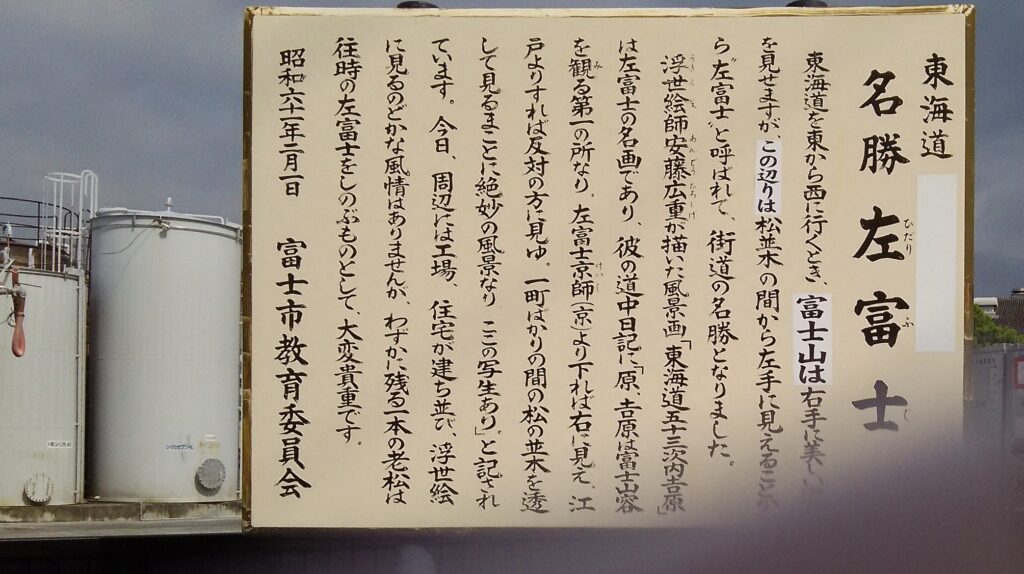 東海道
名勝左富士
ひだり ふ じ
東海道を東から西に行くとき、富士山は右手に美しい
を見せますが、この辺りは松並木の間から左手に見えることか
ら“左富士”と呼ばれて、街道の名勝となりました。
浮世絵師安藤広重が描いた風景画「東海道五十三次内吉原」
うきよえし あんどうひろしげ
は左富士の名画であり、彼の道中日記に「原、吉原は富士山容
を観る第一の所なり。左富士京師(京)より下れば右に見え、江
み けいし
戸よりすれば反対の方に見ゆ。一町ばかりの間の松の並木を透
して見るまことに絶妙の風景なり。ここの写生あり。」と記され
ています。今日、周辺には工場、住宅が建ち並び、浮世絵
に見るのどかな風情はありませんが、わずかに残る一本の老松は
往時の左富士をしのぶものとして、大変貴重です。
昭和六十一年二月一日 富士市教育委員会